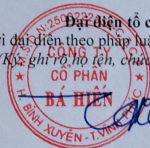 Đại diện tổ c
i đại diện theo pháp luậ
(Ký, ghi rõ họ tên, chức
M.S.D.N:2500222
CÔNG TY
CỔ PHẦN
BÁ HIẾN
H. BÌNH XUYÊN - T. VĨNH PHÚC